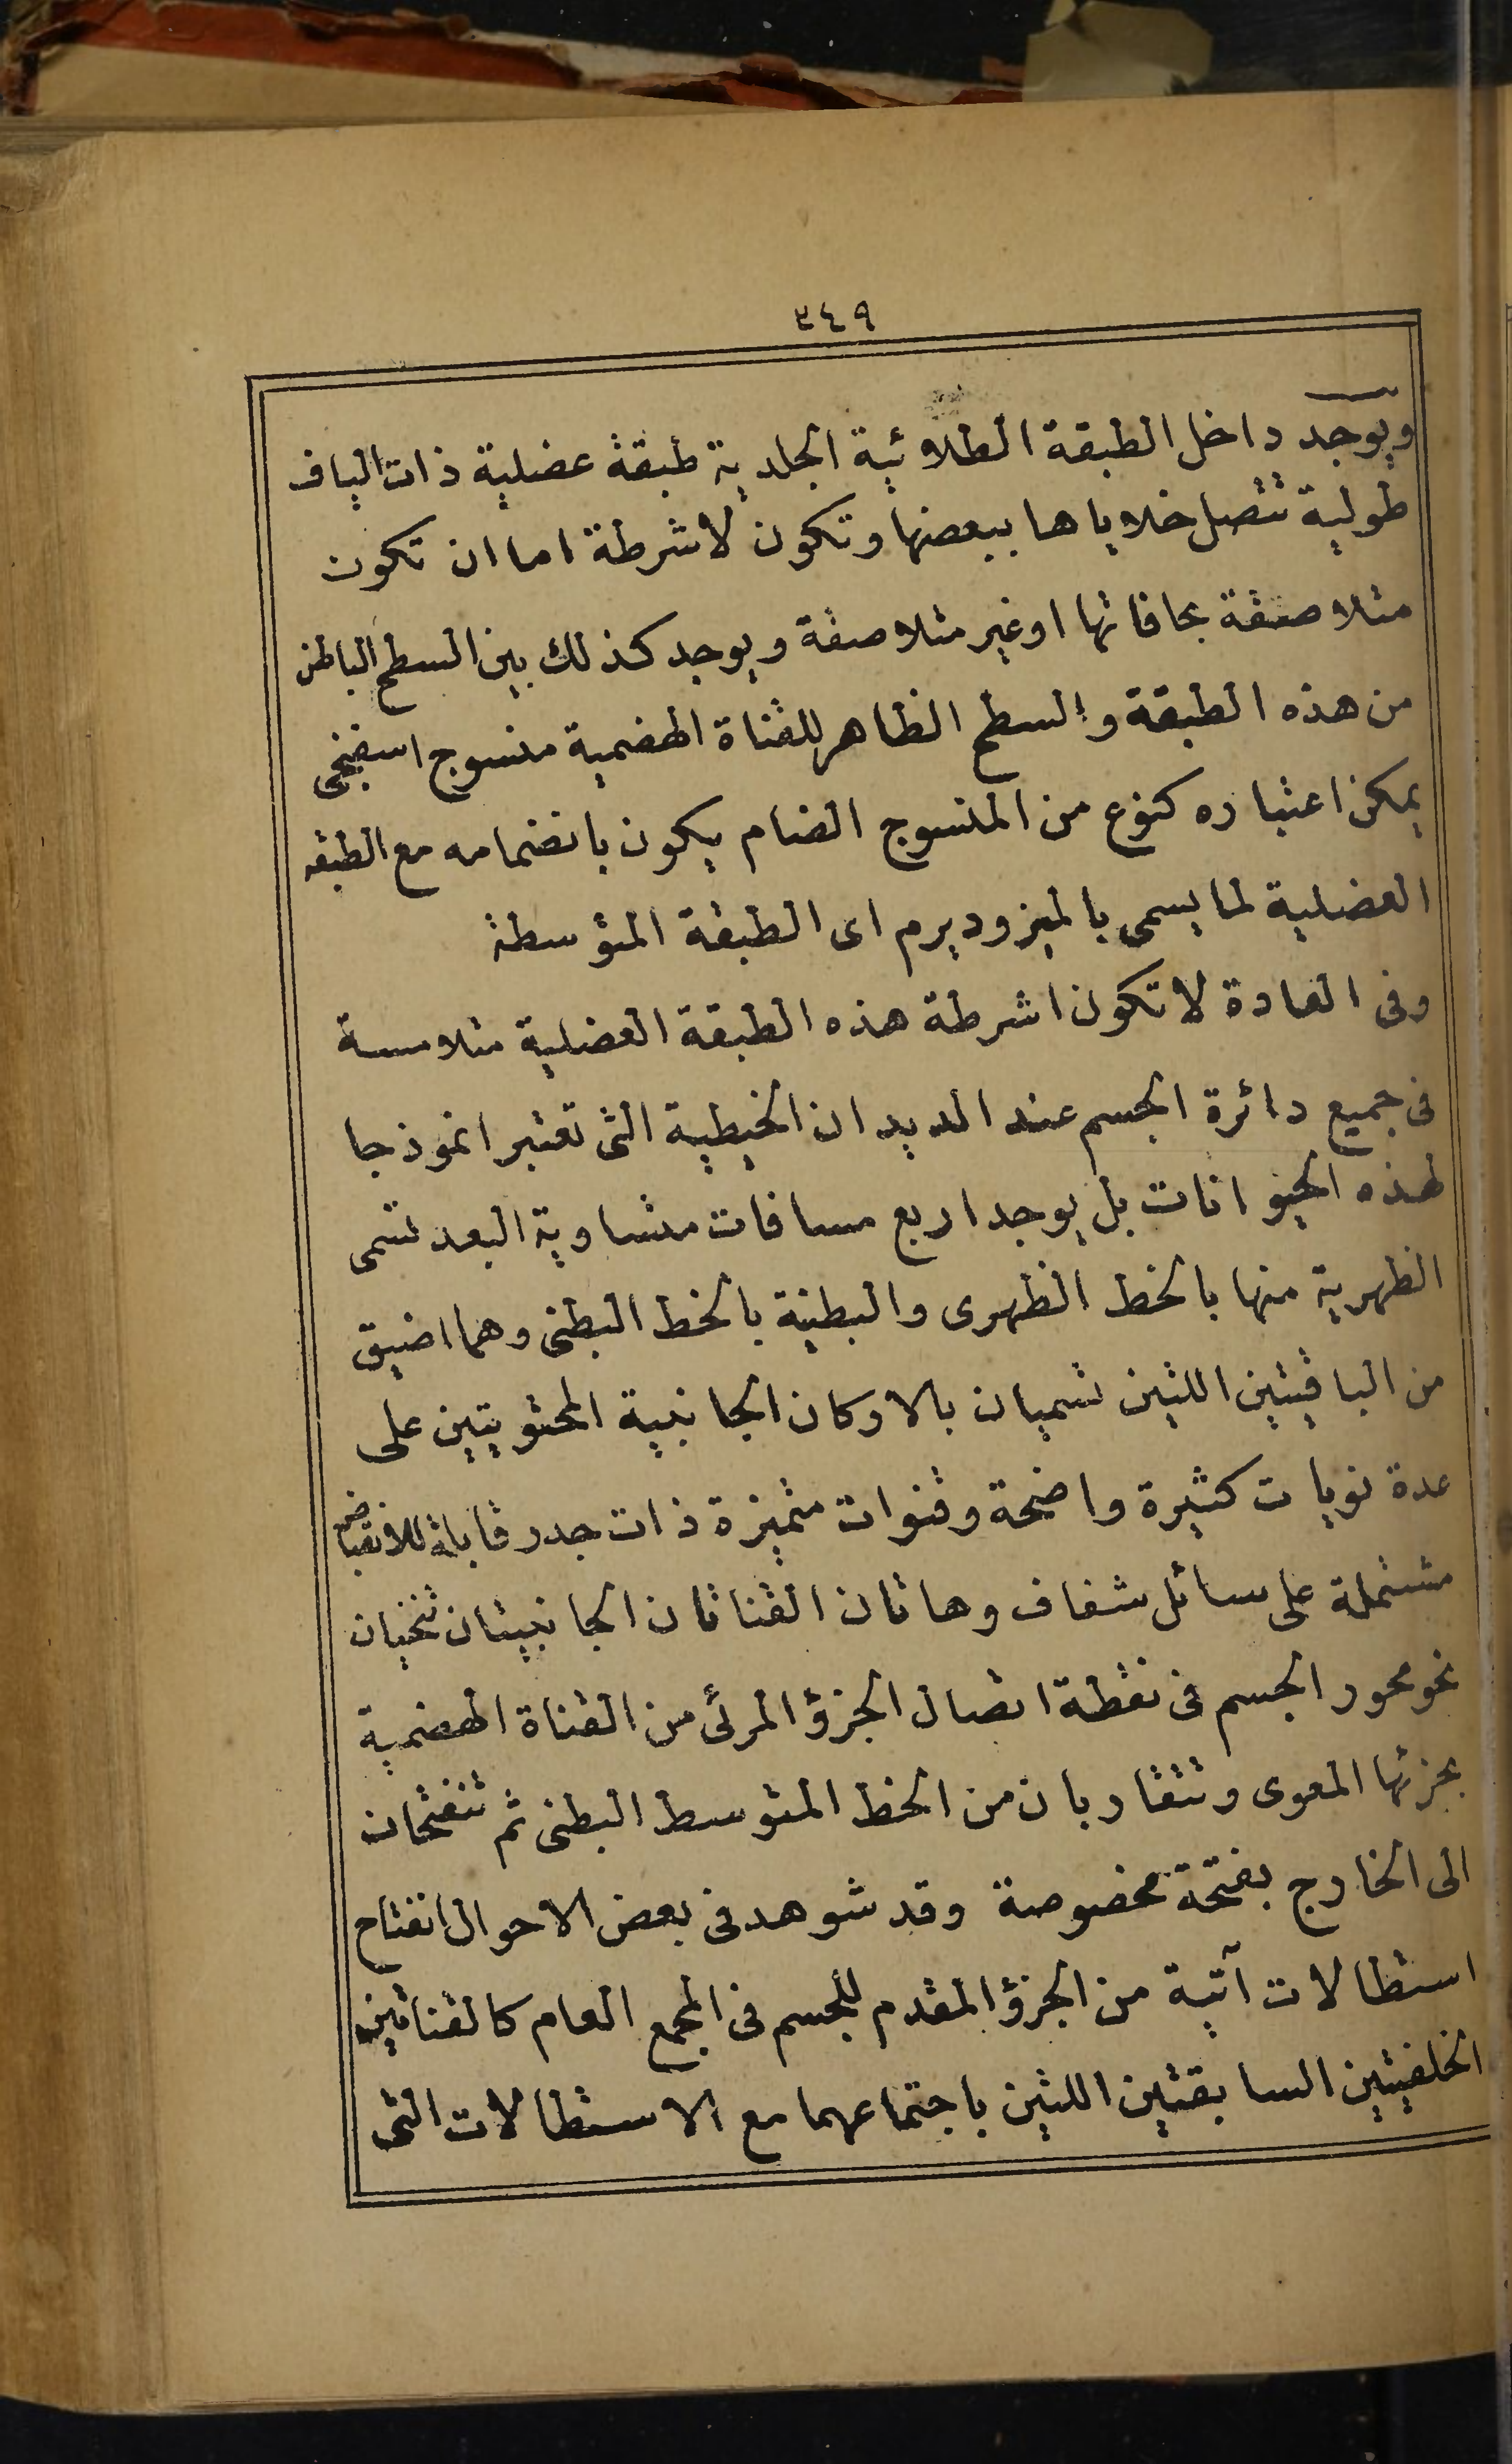 ٣٤٩
ويوجد داخل الطبقة الطلائية الجلدية طبقة عضلية ذات الياف
طولية تتصل خلاياها ببعضها وتكون لاشرطة اما ان تكون
متلاصقة بحافاتها او غير متلاصقة ويوجد كذلك بين السطح الباطن
من هذه الطبقة والسطح الظاهر للقناة الهضمية منسوج اسفنجى
يمكن اعتباره كنوع من المنسوج الضام يكون بانضمامه مع الطبقه
العضلية لما يسمى بالميزوديرم اى الطبقة المتوسطة
وفى العادة لا تكون اشرطة هذه الطبقة العضلية متلامسة
فى جميع دائرة الجسم عند الديدان الخيطية التى تعتبر انموذجا
لهذه الحيوانات بل يوجد اربع مسافات متساوية البعد تسمى
الظهرية منها بالخط الظهرى والبطنية بالخط البطنى وهما اضيق
من الباقيتين اللتين تسميان بالاركان الجانبية المحتويتين على
عدة نويات كثيرة واضحة وقنوات متميزة ذات جدر قابلة للانقباض
مشتملة على سائل شفاف وهاتان القناتان الجانبيتان تنحنيان
نحو محور الجسم فى نقطة اتصال الجزؤ المرئى من القناة الهضمية
بجزئها المعوى وتتقاربان من الخط المتوسط البطنى ثم تنفتحان
الى الخارج بفتحة مخصوصة وقد شوهد فى بعض الاحوال انفتاح
استطالات آتية من الجزؤ المقدم للجسم فى المجمع العام كالقناتين
الخلفيتين السابقتين اللتين باجتماعهما مع الاستطالات التى